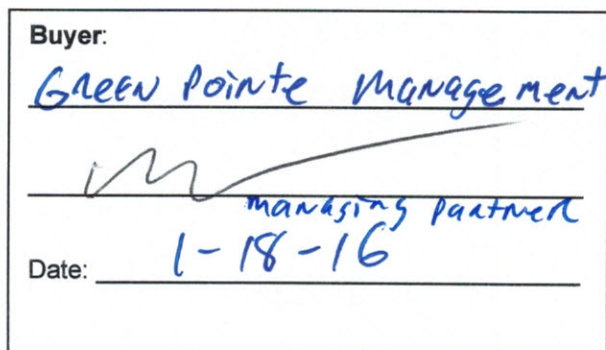 Buyer:
Green Pointe Management
managing partner
Date: 1-18-16